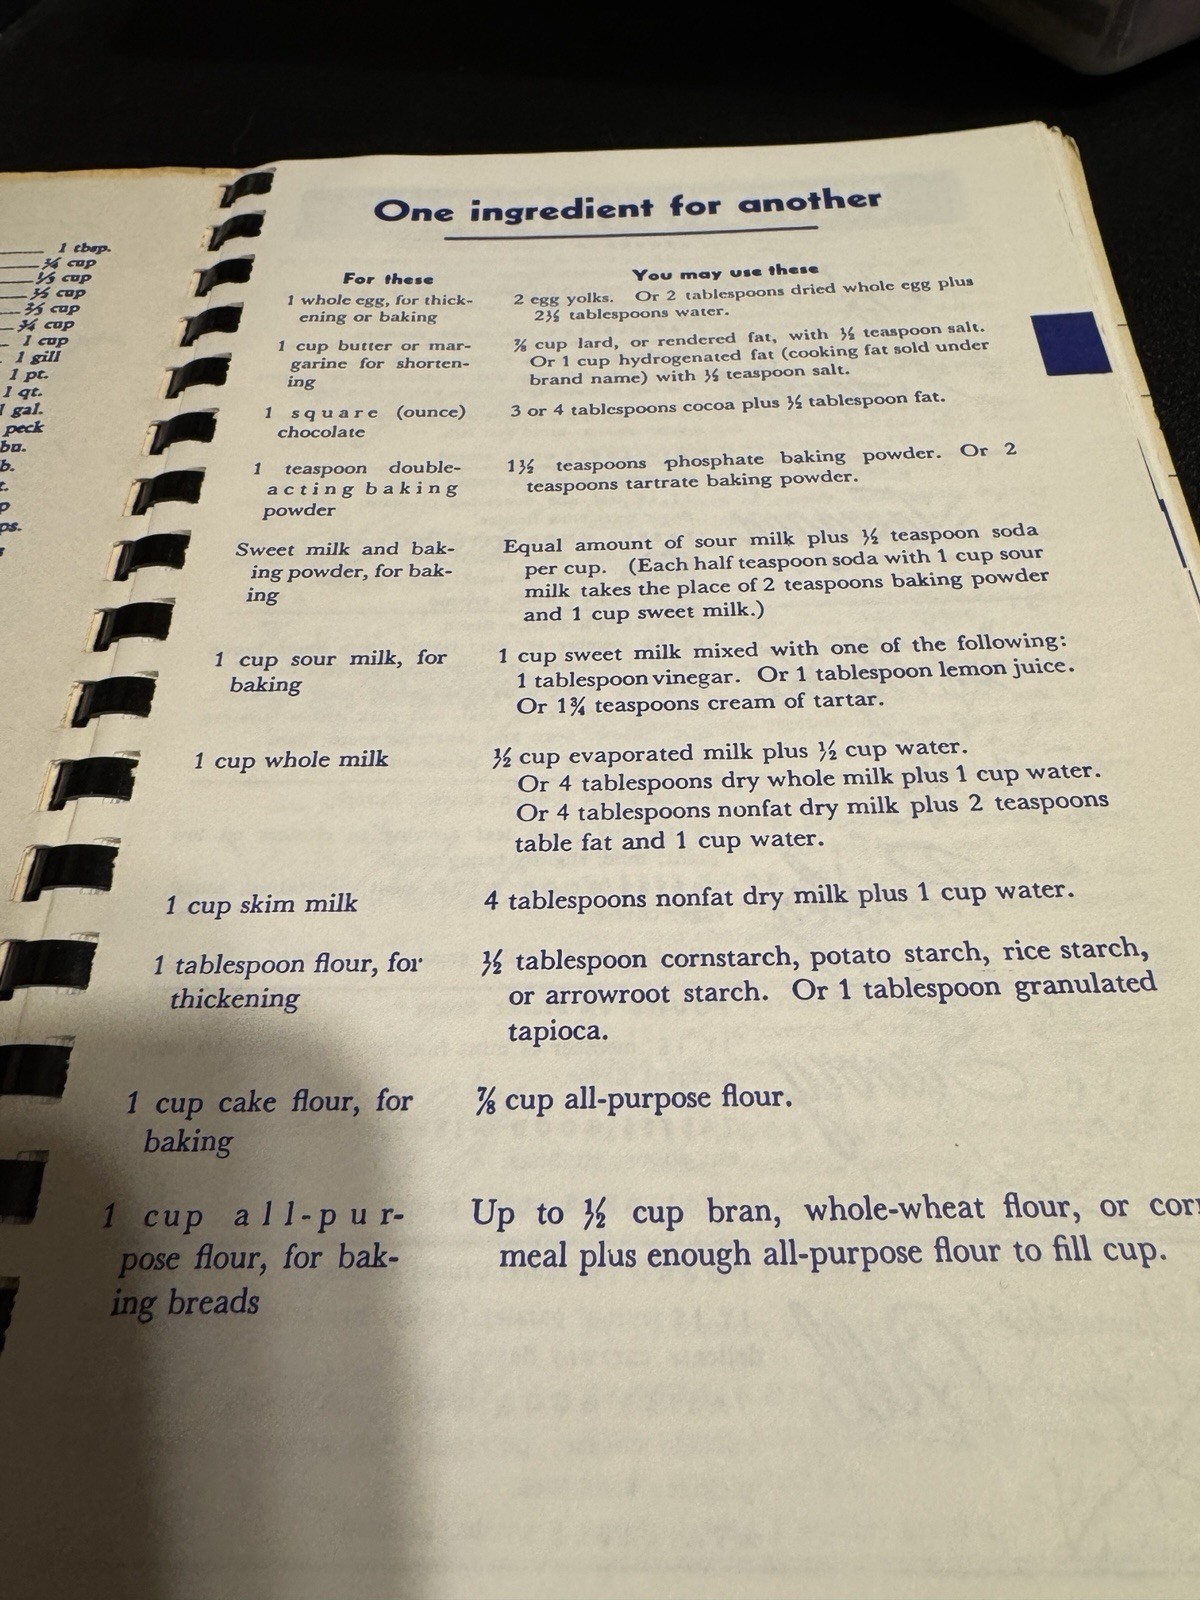 1 tbsp.
¼ cup
⅓ cup
½ cup
⅔ cup
¾ cup
1 cup
1 gill
1 pt.
1 qt.
gal.
peck
bu.
One ingredient for another
For these You may use these
1 whole egg, for thick- 2 egg yolks. Or 2 tablespoons dried whole egg plus
ening or baking 2½ tablespoons water.
1 cup butter or mar- ⅞ cup lard, or rendered fat, with ½ teaspoon salt.
garine for shorten- Or 1 cup hydrogenated fat (cooking fat sold under
ing brand name) with ½ teaspoon salt.
1 square (ounce) 3 or 4 tablespoons cocoa plus ½ tablespoon fat.
chocolate
1 teaspoon double- 1½ teaspoons phosphate baking powder. Or 2
acting baking teaspoons tartrate baking powder.
powder
Sweet milk and bak- Equal amount of sour milk plus ½ teaspoon soda
ing powder, for bak- per cup. (Each half teaspoon soda with 1 cup sour
ing milk takes the place of 2 teaspoons baking powder
and 1 cup sweet milk.)
1 cup sour milk, for 1 cup sweet milk mixed with one of the following:
baking 1 tablespoon vinegar. Or 1 tablespoon lemon juice.
Or 1¾ teaspoons cream of tartar.
1 cup whole milk ½ cup evaporated milk plus ½ cup water.
Or 4 tablespoons dry whole milk plus 1 cup water.
Or 4 tablespoons nonfat dry milk plus 2 teaspoons
table fat and 1 cup water.
1 cup skim milk 4 tablespoons nonfat dry milk plus 1 cup water.
1 tablespoon flour, for ½ tablespoon cornstarch, potato starch, rice starch,
thickening or arrowroot starch. Or 1 tablespoon granulated
tapioca.
1 cup cake flour, for ⅞ cup all-purpose flour.
baking
1 cup all-pur- Up to ½ cup bran, whole-wheat flour, or corn
pose flour, for bak- meal plus enough all-purpose flour to fill cup.
ing breads